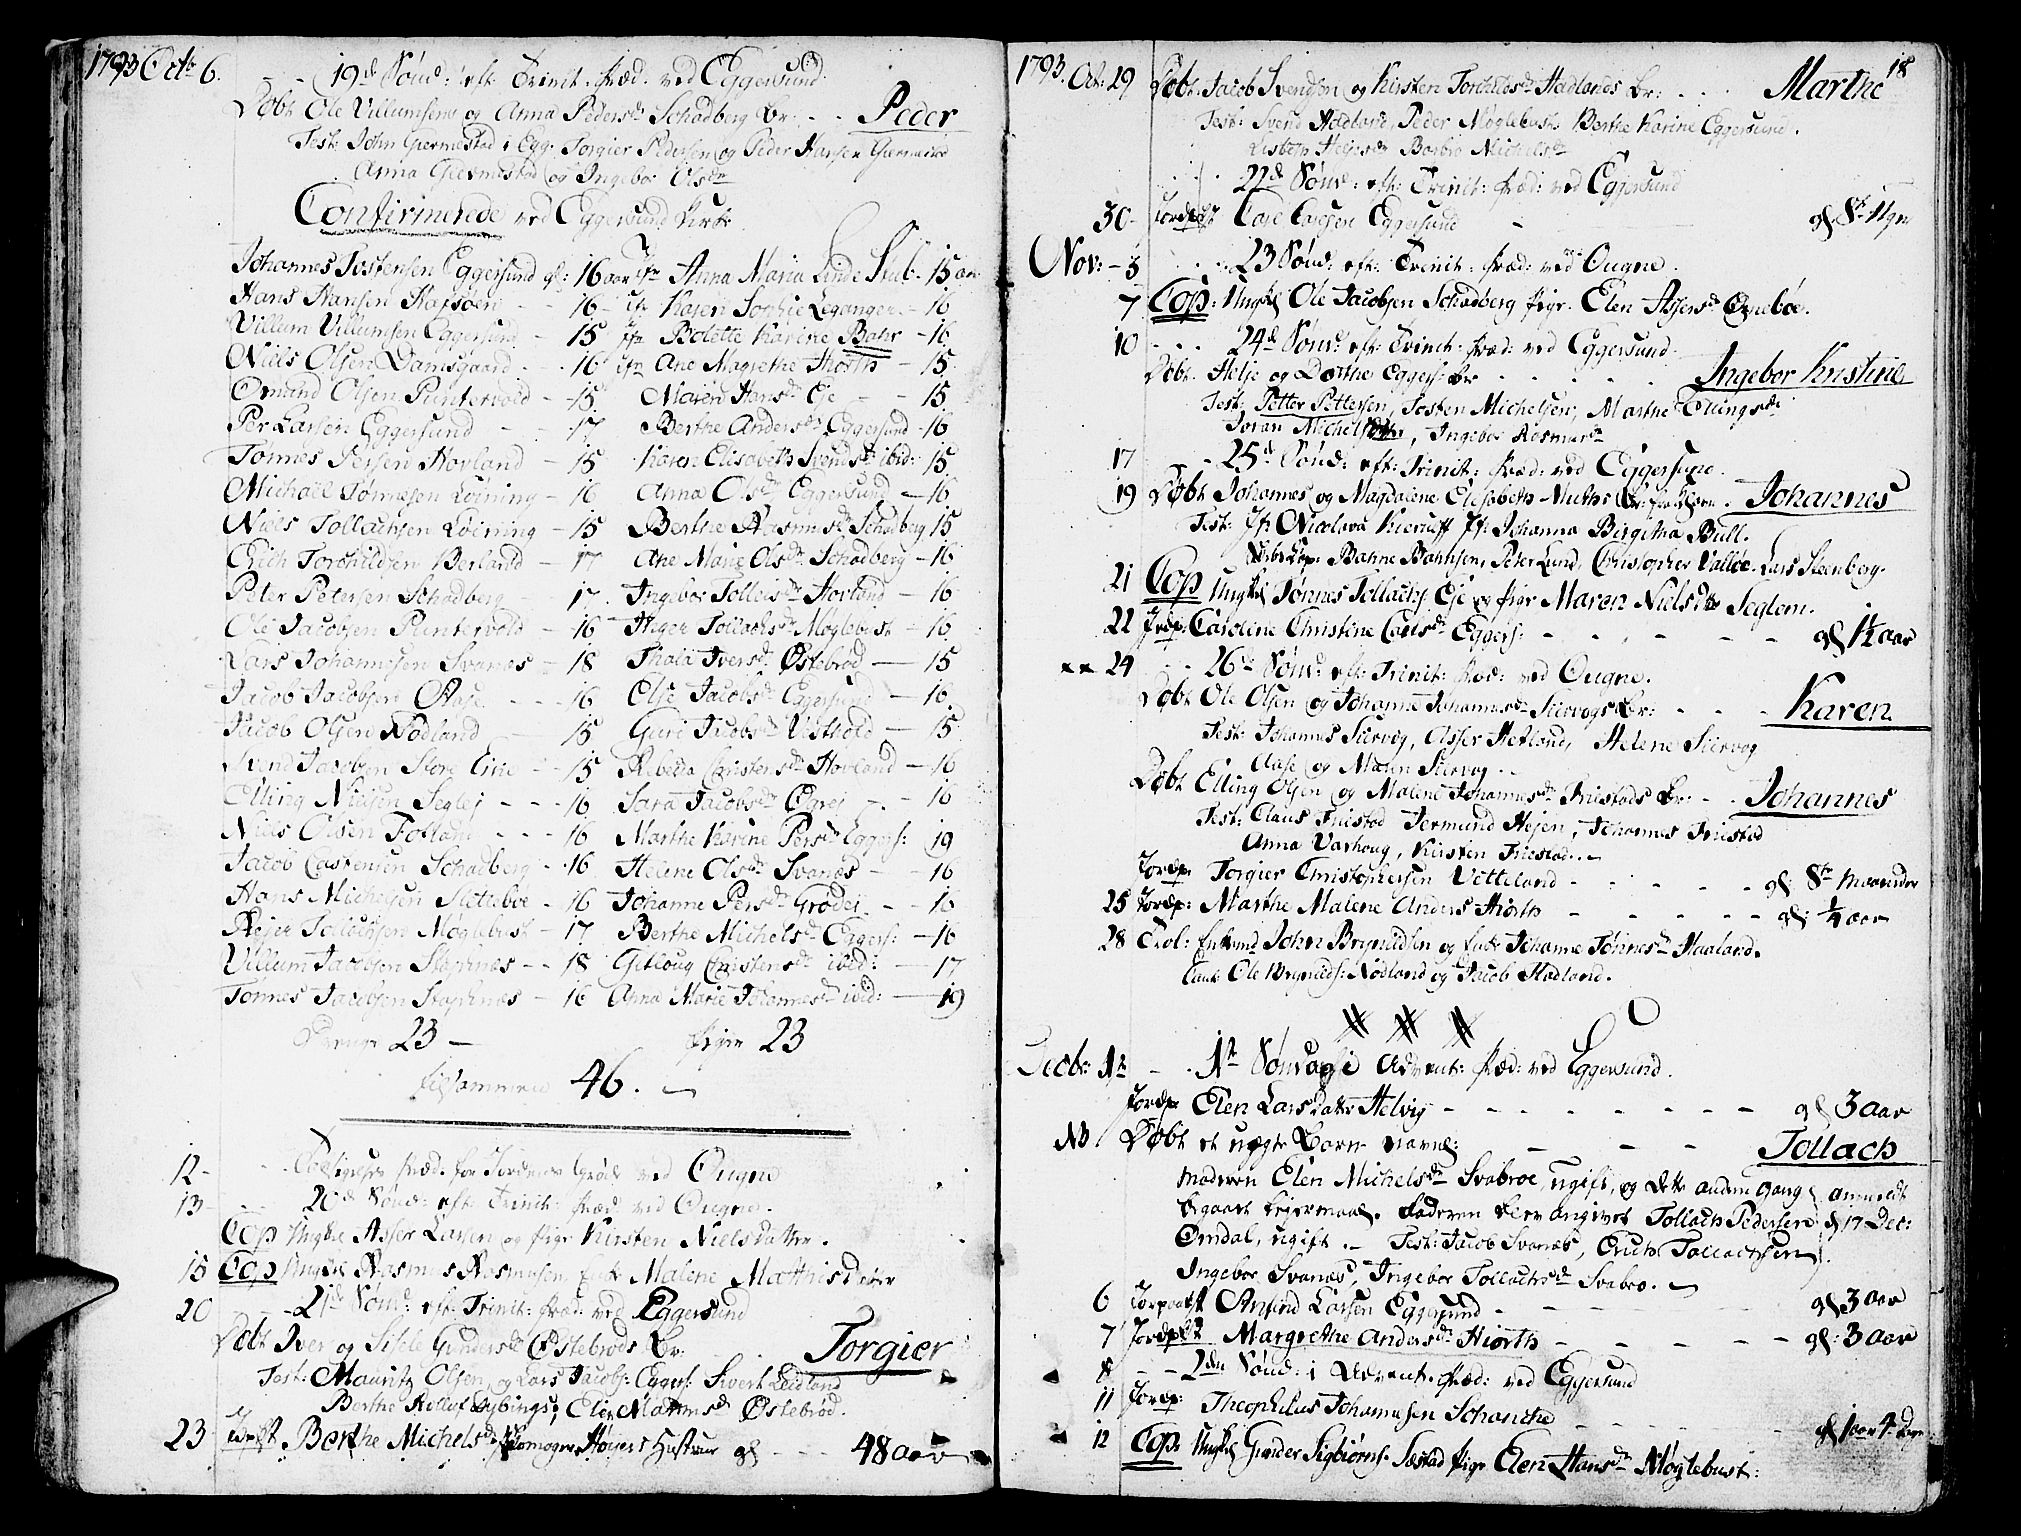 1793 Octr 6. - - 19de Sønd: eft: Trinit: Præd: ved Eggersund
Døbt Ole Villumsens og Anna Pedersdr Schadberg Br: - - Peder
Test: John Giermestad i Egg: Torgier Pedersen og Peder Hansen Giermestad
Anna Giermestad og Ingebor Olsdr
Confirmerede ved Eggersund Kirke
Johannes Tostensen Eggersund gl: 16 aar Jfr Anna Maria Linde Stub - 15 aar
Hans Hansen Hafsøen - - 16 - Jfr Karen Sophie Leganger - 16
Villum Villumsen Eggersund - 15 Jfr Bolette Karine Bahr - 16
Niels Olsen Damsgaard - - 16 Jfr Ane Magrethe Hiorth - 15
Omund Olsen Puntervold - 15 Maren Hansdr Eje - - 15
Per Larsen Eggersund - - 17 Berthe Andersdr Eggersund - 16
Tonnes Persen Hovland - 15 Karen Elisabeth Svendsdr ibid: 15
Michaël Tønnesen Løining - 16 Anna Olsdr Eggersund - 16
Niels Tollachsen Løining - 15 Berthe Rasmusdr Schadberg 15
Erich Torchildsen Berland - 17 Ane Marie Olsdr Schadberg - 16
Peter Petersen Schadberg - 17 Ingebor Tolleisdr Hovland - 16
Ole Jacobsen Puntervold - 16 Inger Tollachsdr Møglebust - 16
Lars Johannesen Svanes - 18 Thala Iversdr Østebrød - 15
Jacob Jacobsen Aase - - - 16 Else Jacobsdr Eggersund - 16
Jacob Olsen Nødland - 15 Guri Jacobsdr Vestvold - 15
Svend Jacobsen Store Eie - - 15 Rebecca Christensdr Hovland - 16
Elling Nielsen Seglej - - - 16 Sara Jacobsdr Egrej - - 16
Niels Olsen Fotland - - - 16 Marthe Karine Persdr Eggers: 19
Jacob Carstensen Schadberg - 16 Helene Olsdr Svanes - - 16
Hans Michelsen Sletteboe - 16 Johanne Persdr Grødei - - 16
Rejer Tollachsen Møglebust - 17 Berthe Michelsdr Eggers: - 16
Villum Jacobsen Stapnes - - 18 Gitloug Christensdr ibid: - 17
Tonnes Jacobsen Stapnæs - 16 Anna Marie Johannesdr ibid: - 19
Drenge 23 - Piger 23
tilsammen 46. -
12 - - - præd. for Jordens Grøde ved Ougne
13 - - - 20de Sønd: eft: Trinit: Præd: ved Ougne.
Cop Ungkl Asser Larsen og Pige Kirsten Nielsdatter.
15 Cop Ungkl Rasmus Rasmusen, Enke Malene Mathisdatter
20 - - - 21de Sønd: eft: Trinit: Præd: ved Eggersund
Døbt Iver og Sissele Gundersdr Østebrøds Br: Torgier
Test: Mauritz Olsen og Lars Jacobs: Eggers: Sivert Leidland
Berthe Østebrød.
23 Jordf: Berthe Michelsdr Høyers Hustrue gl - - - 48 aar
1793. Octr: 29 Døbt. Jacob Svendsen og Kirsten Torchildsdr Hadlands Br: . . . Marthe 18
Test: Svend Hadland, Peder Møglebust, Berthe Karine Eggersund.
Lisbeth Heljesdr Barbro Michelsdr
22de Sønd: eft: Trinit: Præd: ved Eggersund
30 - Jordf: Carl Larsen Eggersund - gl. 8te Ugr
Nov: - 3 . . 23 Sønd: eft: Trinit: Præd: ved Ougne.
7 Cop: Ungkl Ole Jacobsen Schadberg Pige. Elen Assersdr Egnebøe.
10 . . . 24de Sønd: eft: Trinit: Præd: ved Eggersund
Døbt. Helje og Dorthe Eggers: Br . . . . . Ingebor Kristine
Test: Petter Pettersen, Tosten Michelsen, Marthe Ellingsdr
Joran Michelsdtr, Ingebor Rasmusdr
17 - 25de Sønd: eft: Trinit: Præd: ved Eggersund.
19 Døbt Johannes og Magdalene Elisabeth Muths Br: . Johannes
Test: Jfr Nicolava Kierulff Jfr: Johanna Birgitha Bull.
Bahne Bahnsen, Peter Lund, Christopher Valløe. Lars Steenberg.
21 Cop Ungkl Tønnes Tollachs: Eje og Pige Maren Nielsdtr Seglem.
22 Jordf: Caroline Christine Larsdr Eggers: - - - - - - gl 1½ aar
xx 24 . . 26de Sønd: eft: Trinit: Præd: ved Ougne.
Døbt Ole Olsen og Johanne Johannesdr Siervogs Br: - - - Karen
Test: Johannes Siervog, Asser Hetland, Helene Siervog
Aase og Maren Siervog . .
Døbt Elling Olsen og Malene Johannesdr Friestads Br: - - Johannes
Test: Claus Friestad Jermund Hejen, Johannes Friestad
Anna Varhoug, Kirsten Friestad. . -
Jordf: Torgier Christophersen Vetteland - - - - - gl: 8te Maander
25 Jordf: Marthe Malene Anders Hiorth - - - - - - gl: ¼ aar
28 Trol: Enkmd John Brynildsen og Enke Johanne Tønnesdr Haaland.
Caut: Ole Brynilds: Nødland og Jacob Hadland.
Decbr: 1te - . 1te Søndag i Advent: Præd: ved Eggersund.
Jordf: Elen Larsdatter Helvig - - - - - - - - gl 3 aar
NB Døbt et uægte Barn navnl: - - - - Tollach
Moderen Elen Michelsdr Svabroe, ugift, og dette anden gang anmeldt
begaaet Lejermaal. Faderen blev angivet Tollach Pedersen d 17 Dec:
Omdal, ugift. - Test: Jacob Svanæs, Erich Tollachsen
Ingebor Svanæs, Ingebor Tollachsdr Svabro. -
6 Jordf: Anfind Larsen Eggersund - - - - - gl 3 aar
7 Jordf: Margrethe Andersdr Hiorth - - - - - gl: 3 aar
8 - - 2den Sønd: i Advent. Præd: ved Eggersund
11 Jordf: Theophilus Johannesen Schanche - - - - gl 1 aar 4r Dage
12 Cop: Ungkl Gunder Sigbiørns: Sæstad Pige Elen Hansdr Møglebust: